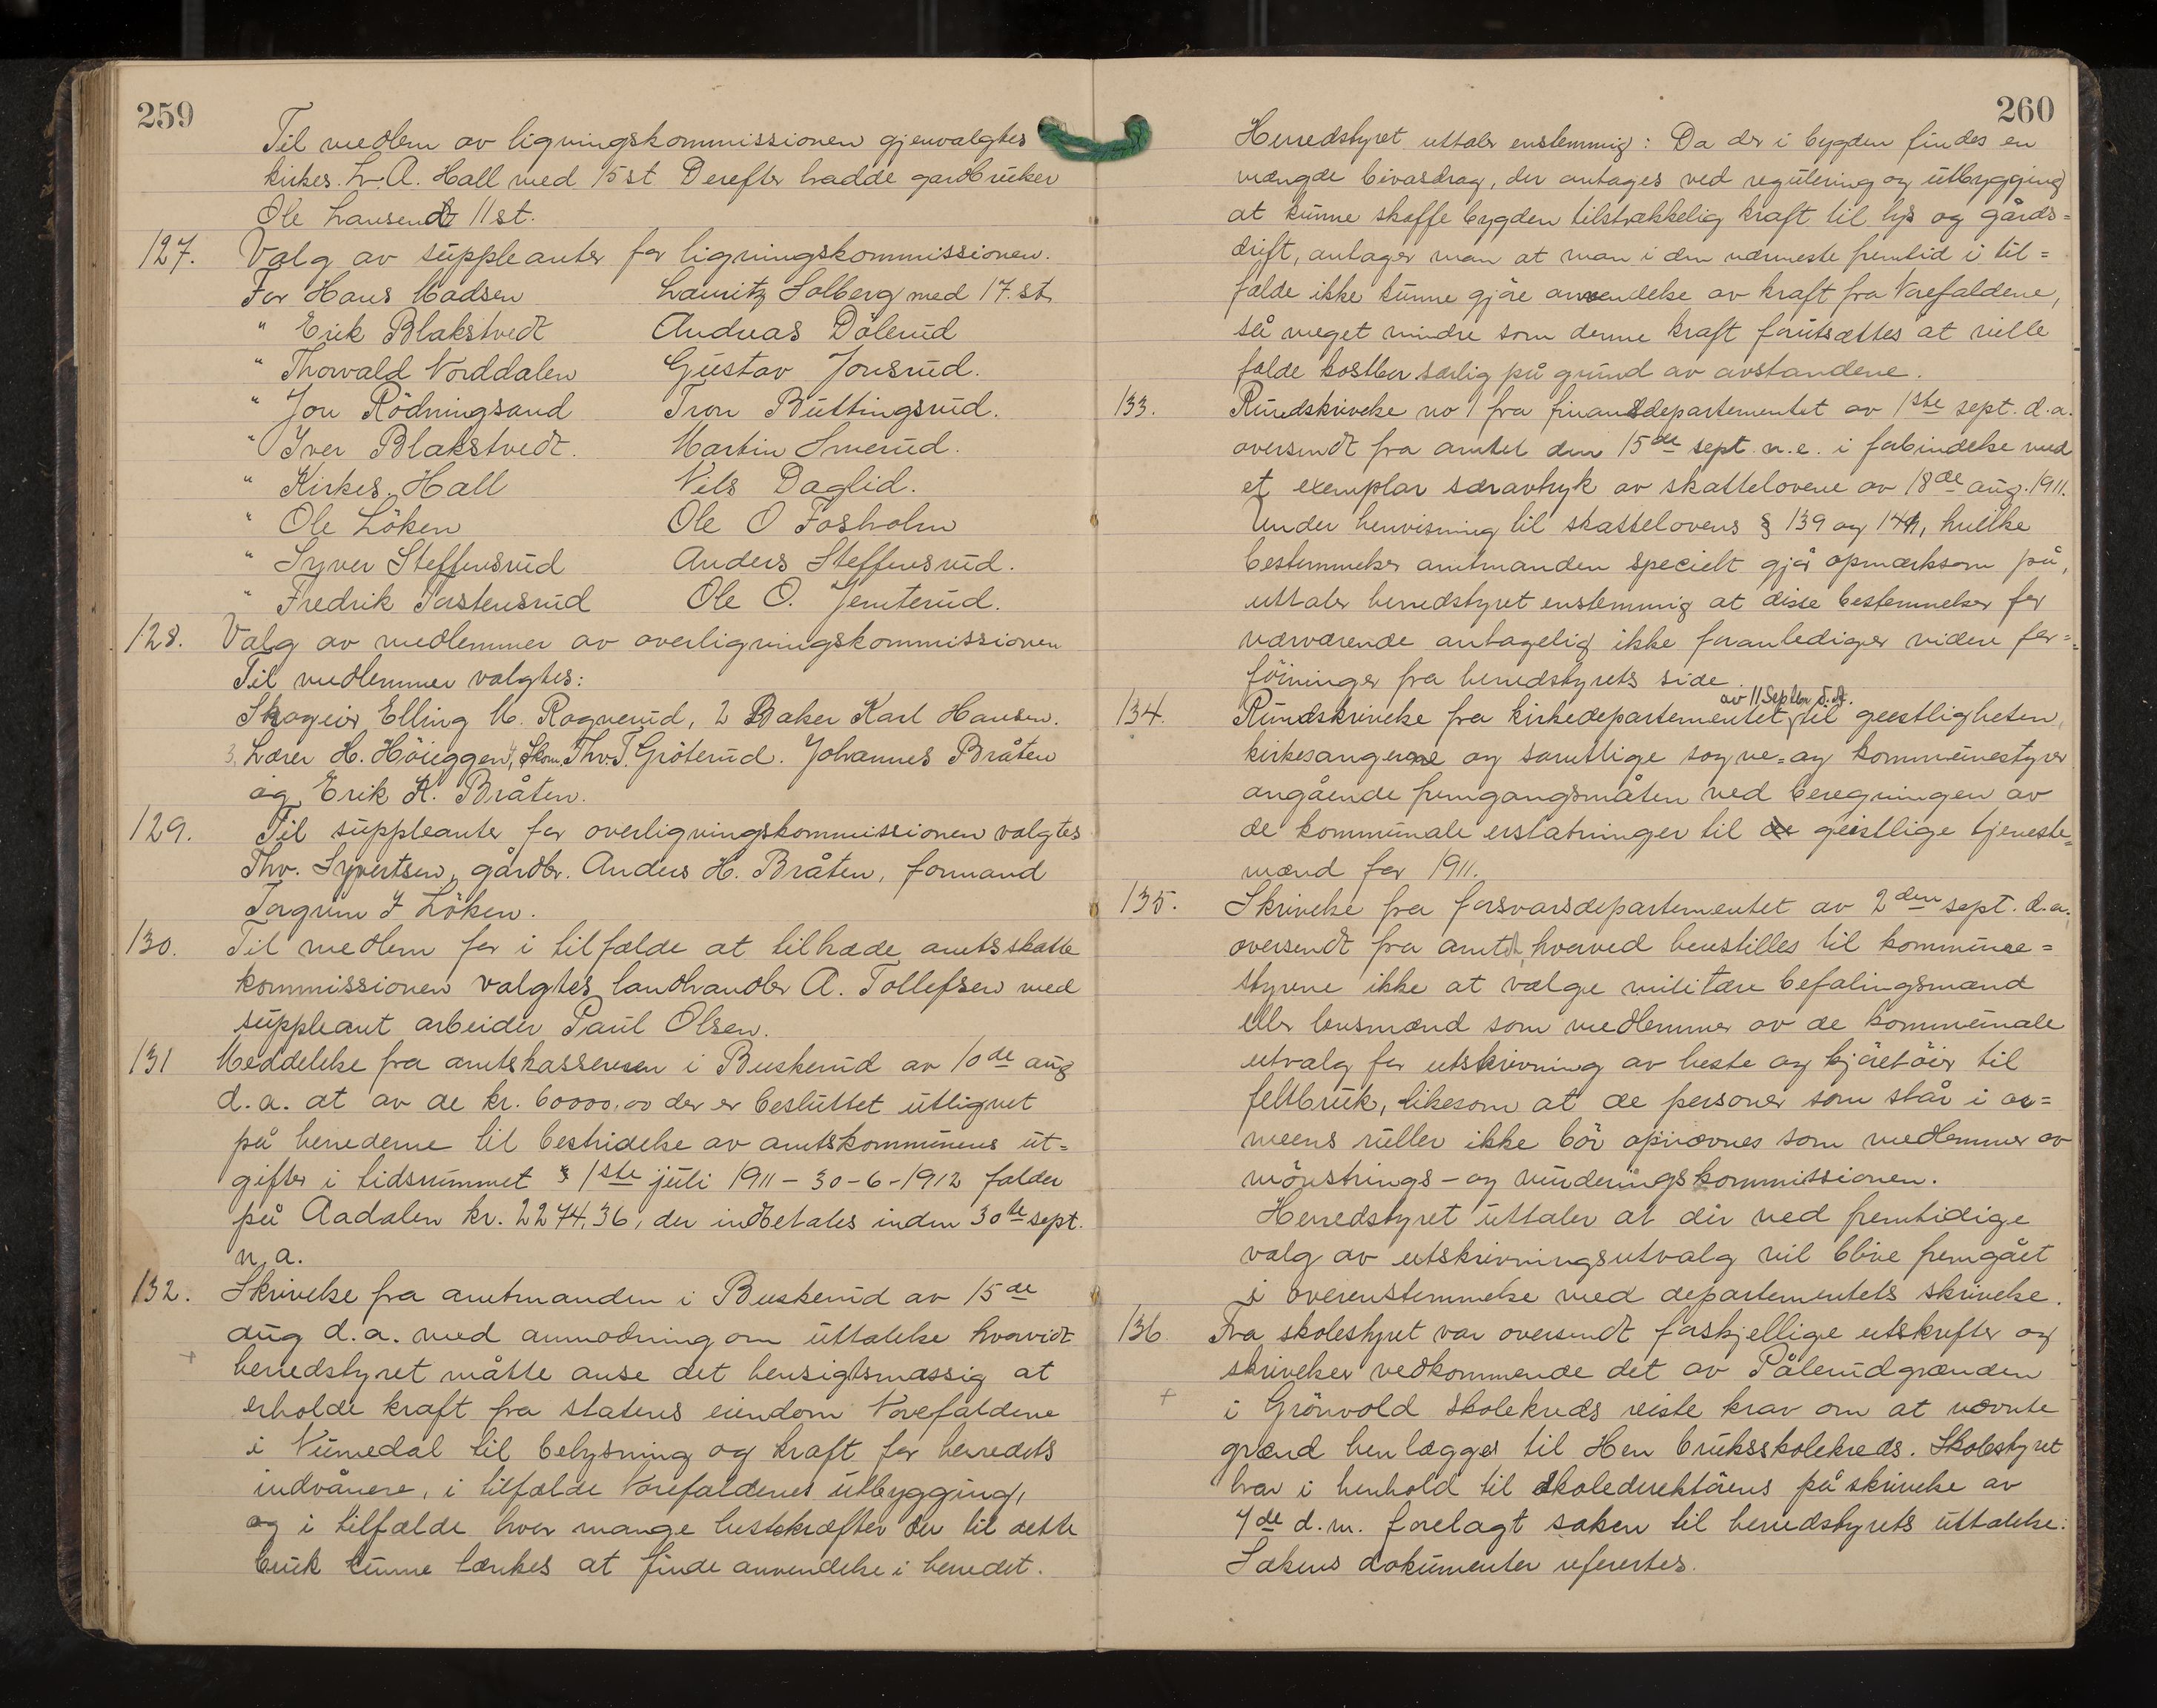 259
Til medlem av ligningskommissionen gjenvalgtes
kirkes. L. A. Hall med 15 st Derefter hadde gardbruker
Ole Lausendt 11 st.
127. Valg av suppleanter for ligningskommissionen.
For Hans Madsen Lauritz Solberg med 17. st.
" Erik Blakstvedt Andreas Dölerud
" Thorvald Norddalen Gustav Jonsrud.
" Jon Rödningsand Tron Buttingsrud.
" Iver Blakstvedt. Martin Smerud.
" Kirkes. Hall Nils Daglid.
" Ole Löken Ole O Fosholm
" Syver Steffensrud Anders Steffensrud.
" Fredrik Torstensrud Ole O. Jemterud.
128. Valg av medlemmer av overligningskommissionen
Til medlemmer valgtes:
Skogeier Elling M. Rognerud, 2 Baker Karl Hansen.
3, Lærer H. Höieggen, 4, Skom. Thv. T. Gröterud. Johannes Bråten
og Erik K. Bråten.
129. Til suppleanter for overligningskommissionen valgtes
Thv. Syvertsen, gårdbr. Anders H. Bråten, formand
Torgrim J Löken.
130. Til medlem for i tilfælde at tiltræde amtsskatte
kommissionen valgtes landhandler A. Tollefsen med
suppleant arbeider Paul Olsen.
131 Meddelelse fra amtskassereren i Buskerud av 10de aug
d. a. at av de kr. 60000.00 der er besluttet utlignet
på herrederne til bestridelse av amtskommunens ut=
gifter i tidsrummet 1ste juli 1911 - 30-6-1912 falder
på Aadalen kr. 2274.36, der indbetales inden 30te sept.
n. a.
132. Skrivelse fra amtmanden i Buskerud av 15de
aug d. a. med anmodning om uttalelse hvorvidt
+ herredstyret måtte anse det hensigtsmæssig at
erholde kraft fra statens eiendom Norefaldene
i Numedal til belysning og kraft for herredets
indvånere, i tilfælde Norefaldenes utbygging,
og i tilfælde hvor mange hestekræfter der til dette
bruk kunne tænkes at finde anvendelse i herredet.
260
Herredstyret uttaler enstemmig: Da der i bygden findes en
mængde bivasdrag, der antages ved regulering og utbygging
at kunne skaffe bygden tilstrækkelig kraft til lys og gårds=
drift, antager man at man i den nærmeste fremtid i til=
fælde ikke kunne gjöre anvendelse av kraft fra Norefaldene,
så meget mindre som denne kraft forutsættes at ville
falde kostbar særlig på grund av avstandene.
133. Rundskrivelse no 1 fra finansdepartementet av 1ste sept. d. a.
oversendt fra amtet den 15de sept. n. e. i forbindelse med
et exemplar særavtryk av skattelovene av 18de aug. 1911.
Under henvisning til skattelovens § 139 og 141, hvilke
bestemmelser amtmanden specielt gjör opmærksom på,
uttaler herredstyret enstemmig at disse bestemmelser for
nærværende antagelig ikke foranlediger videre for=
föininger fra herredstyrets side.
134. Rundskrivelse fra kirkedepartementet av 11 Septbr. d. å. til geistligheten,
kirkesangerne og samtlige sogne= og kommunestyrer
angående fremgangsmåten ved beregningen av
de kommunale erstatninger til geistlige tjeneste=
mænd for 1911.
135. Skrivelse fra forsvarsdepartementet av 2den sept. d. a.
oversendt fra amtet, hvorved henstilles til kommune=
styrene ikke at vælge militære befalingsmænd
eller lensmænd som medlemmer av de kommunale
utvalg for utskrivning av heste og kjöretöier til
feltbruk, likesom at de personer som står i ar=
meens ruller ikke bör opnævnes som medlemmer av
mönstrings- og vurderingskommissionen.
Herredstyret uttaler at der ved fremtidige
valg av utskrivningsutvalg vil blive fremgået
i overenstemmelse med departementets skrivelse.
136. Fra skolestyret var oversendt forskjellige utskrifter og
skrivelser vedkommende det av Pålerudgrænden
+ i Grönvold skolekreds reiste krav om at nævnte
grænd henlægges til Hen bruksskolekreds. Skolestyret
har i henhold til skoledirektörens påskrivelse av
4de d. m. forelagt saken til herredstyrets uttalelse.
Sakens dokumenter refereres.